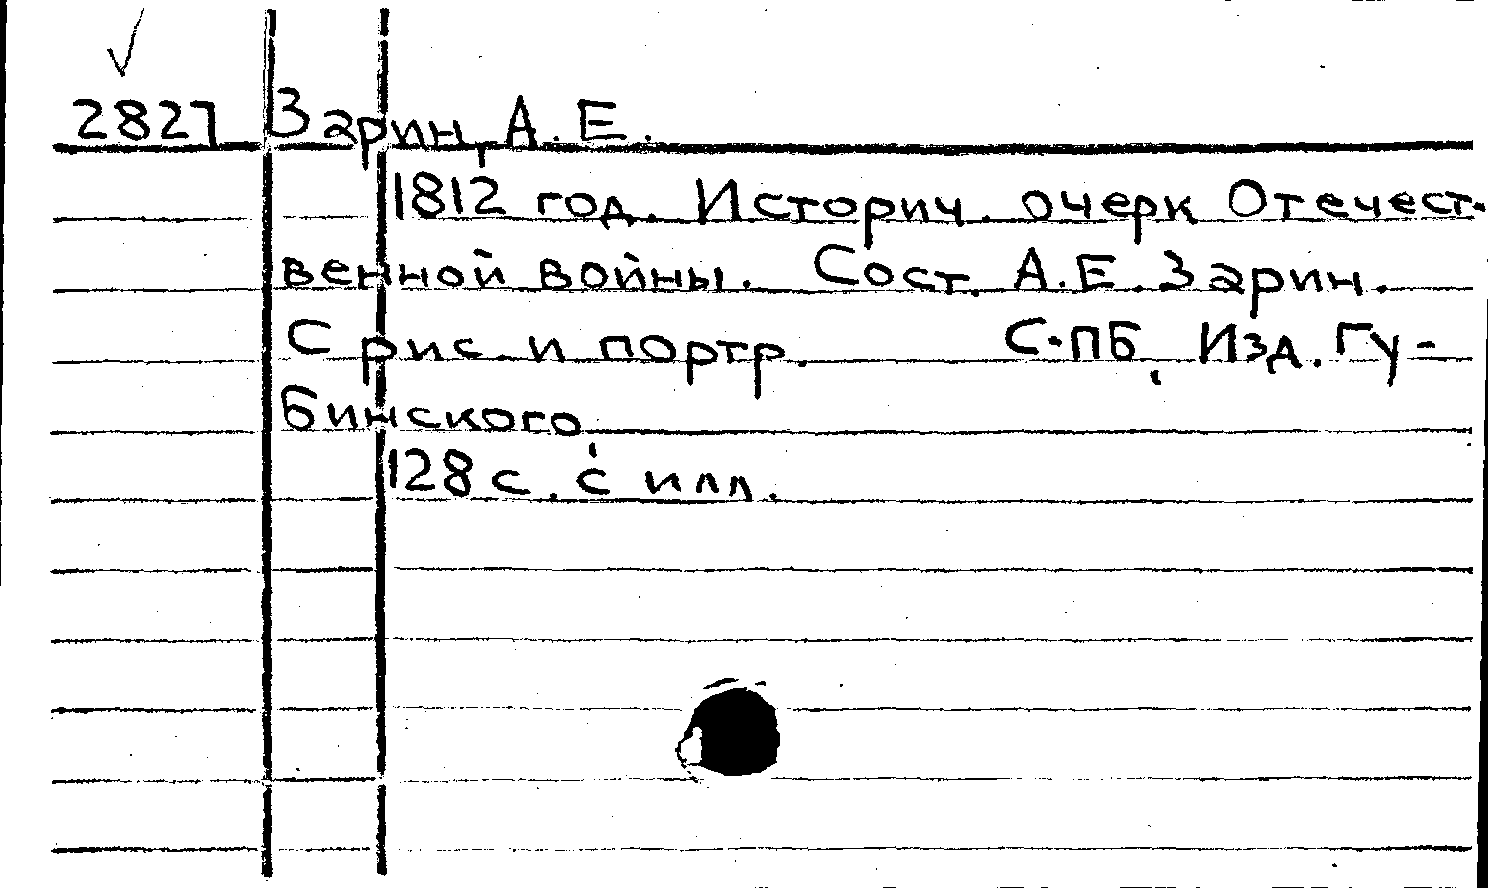 2827 Зарин, А. Е.
1812 год. Историч. очерк Отечест-
венной войны. Сост. А.Е. Зарин.
С рис. и портр. С-ПБ, Изд. Гу-
бинского,
128 с. с илл.